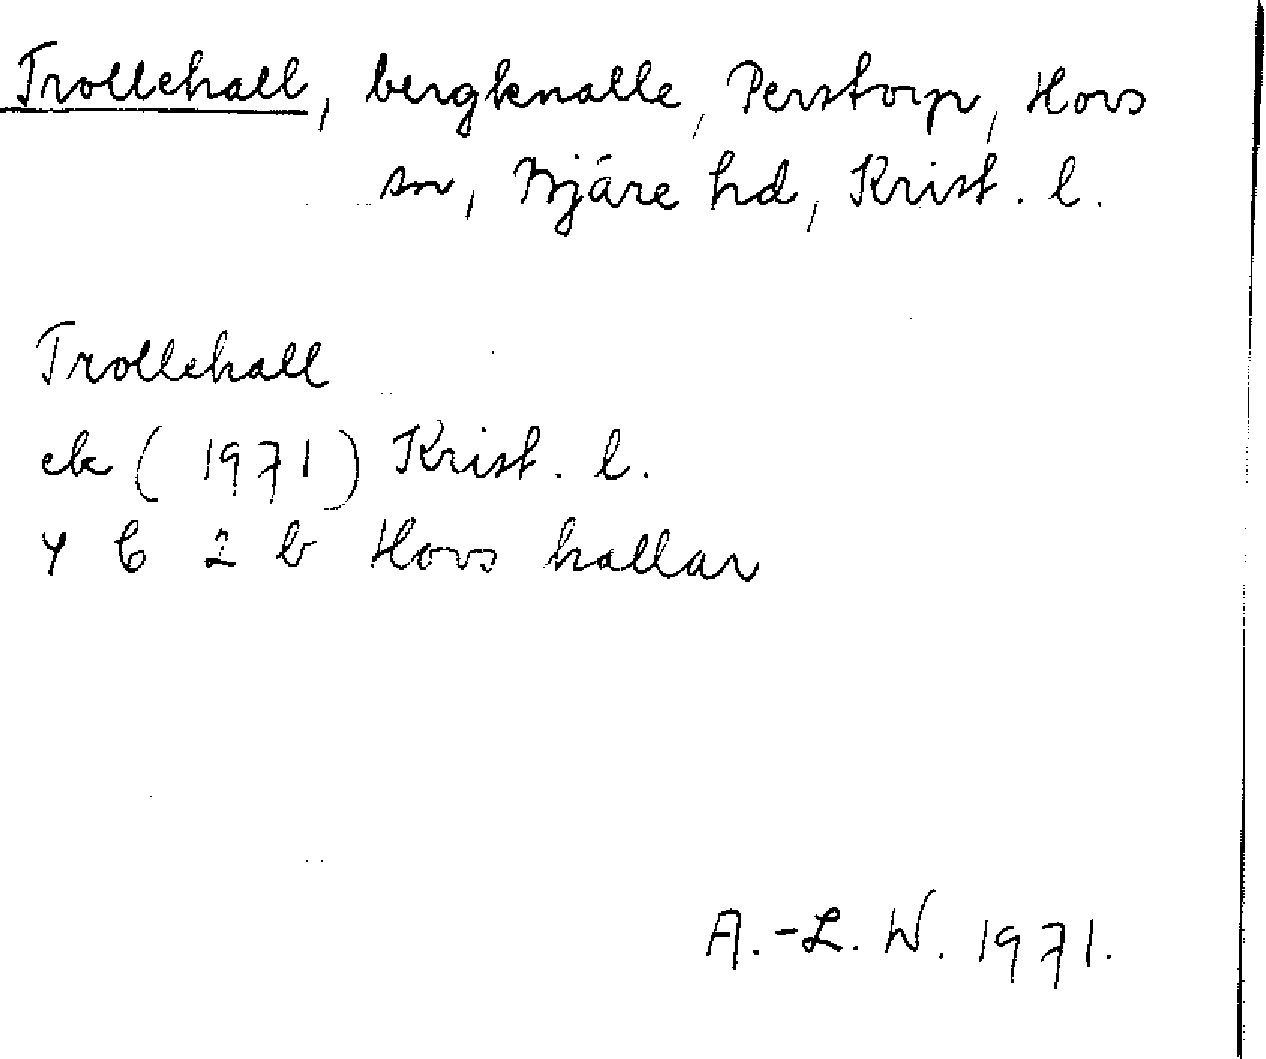 Trollehall, bergknalle, Perstorp, Hovs
sn, Bjäre hd, Krist. l.
Trollehall
ek (1971) Krist. l.
4 C 2 b Hovs hallar
A.-L. W. 1971.